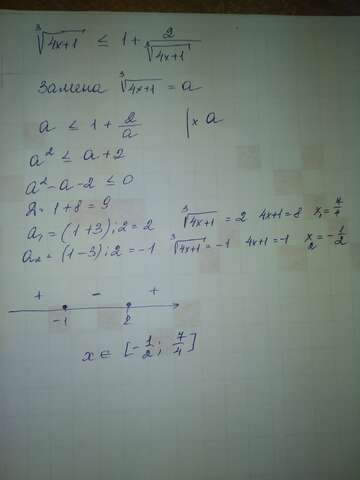 ∛(4x+1) ≤ 1 + 2/∛(4x+1)
Замена ∛(4x+1) = a
a ≤ 1 + 2/a | x a
a² ≤ a + 2
a² - a - 2 ≤ 0
Д = 1 + 8 = 9
a₁ = (1 + 3) : 2 = 2 ∛(4x+1) = 2 4x+1 = 8 x₁ = 7/4
a₂ = (1 - 3) : 2 = -1 ∛(4x+1) = -1 4x+1 = -1 x₂ = -1/2
+ - +
-1 2
x ∈ [-1/2; 7/4]